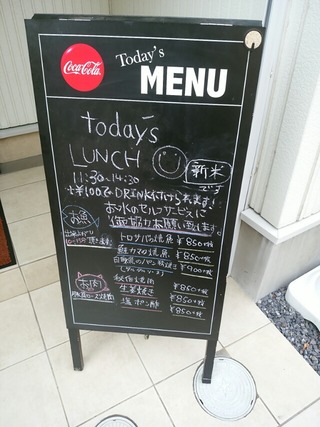 Coca-Cola
Today's
MENU
today's
LUNCH
新米
です
11:30~14:30
+¥100でDRINK付けられます!
お水のセルフサービスに
御協力お願い致します。
お魚
トロサバの焼魚 ¥850+税
鮭カマの焼魚 ¥850+税
¥900+税
お肉
生姜焼き ¥850+税
塩ポン酢 ¥850+税